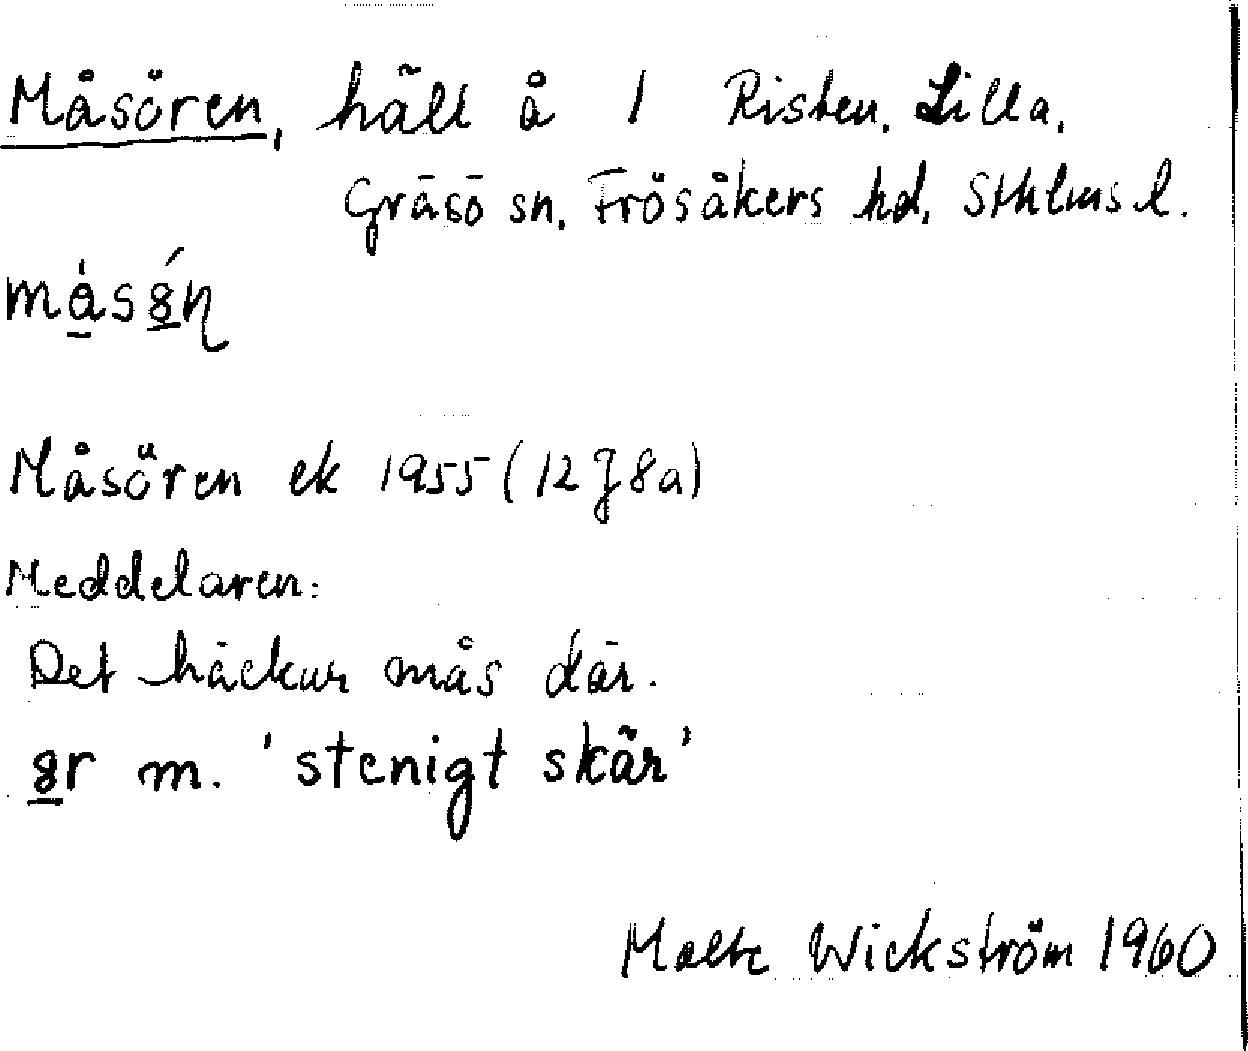 Måsören, häll å 1 Risten, Lilla,
Gräsö sn, Frösåkers hd, Sthlms l.
Måsören ek 1955 (12J8a)
Meddelaren:
Det häckar mås där.
m. 'stenigt skär'
Malte Wickström 1960